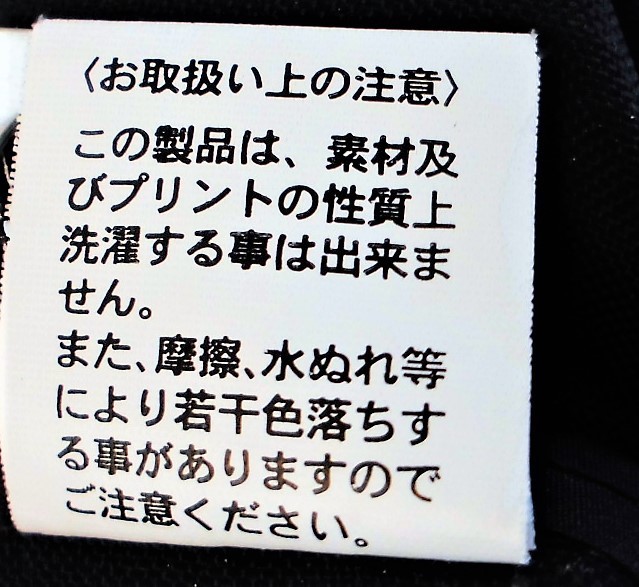 〈お取扱い上の注意〉
この製品は、素材及
びプリントの性質上
洗濯する事は出来ま
せん。
また、摩擦、水ぬれ等
により若干色落ちす
る事がありますので
ご注意ください。